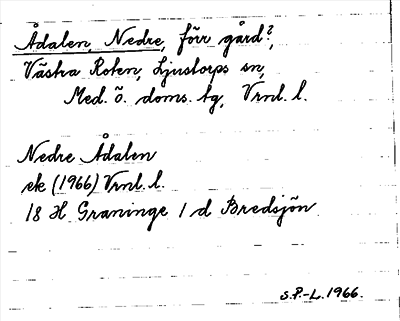 Ådalen, Nedre, förr gård?,
Västra Roten, Ljustorps sn,
Med. ö. doms. tg, Vrnl. l.
Nedre Ådalen
ek (1966) Vrnl. l.
18 H Graninge 1 d Bredsjön
S.P.-L. 1966.